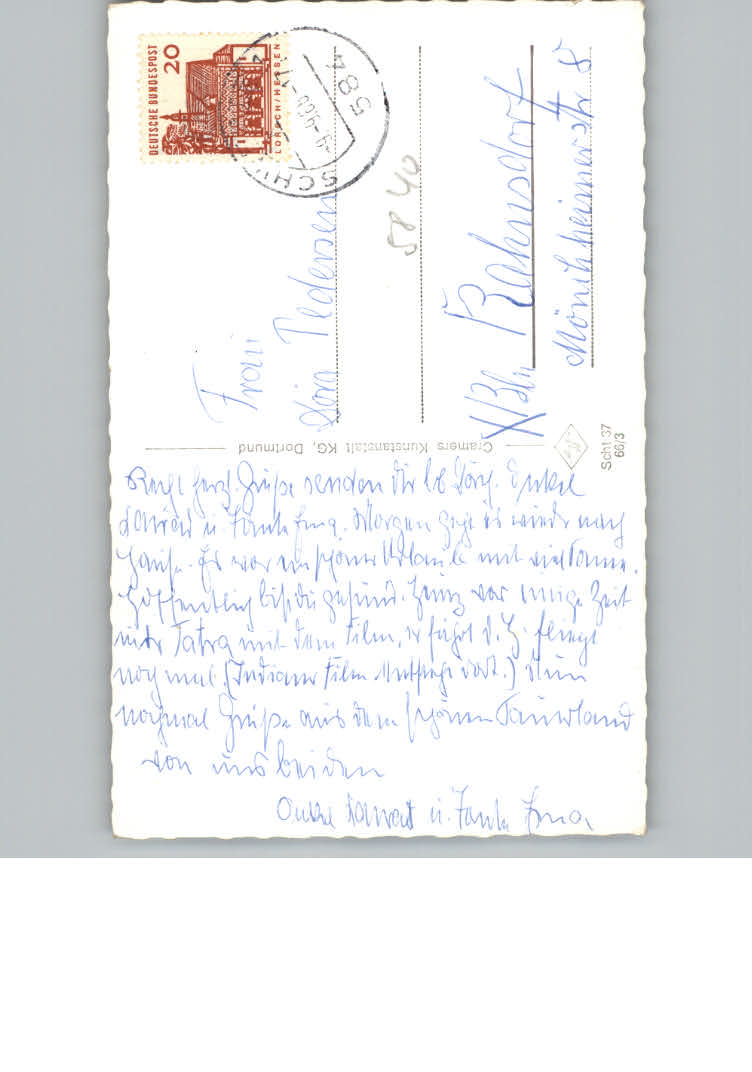 DEUTSCHE BUNDESPOST
20
LORSCH/HESSEN
584
SCHW
5840
Frau
Dora Pedersen
X/Bln Rahnsdorf
Mönchheimerstr 8
Cramers Kunstanstalt KG, Dortmund
Scht 37
66/3
Recht herzl. Grüße senden Dir lb. Onkel
u. Tante Erna. Morgen geht es wieder nach
Hause. Es war ein schöner Urlaub mit viel Sonne.
Hoffentlich bist du gesund. war einige Zeit
in der Tatra mit dem Film, er fährt d. H. fliegt
noch mal. (Indianer Film dort.) Nun
nochmal Grüße aus dem schönen Sauerland
von uns beiden
Onkel u. Tante Erna